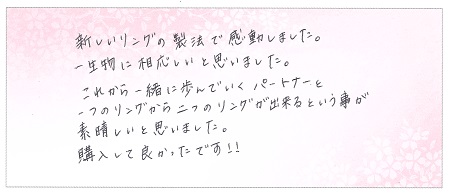 新しいリングの製法で感動しました。
一生物に相応しいと思いました。
これから一緒に歩んでいく パートナーと
一つのリングから二つのリングが出来るという事が
素晴しいと思いました。
購入して良かったです!!